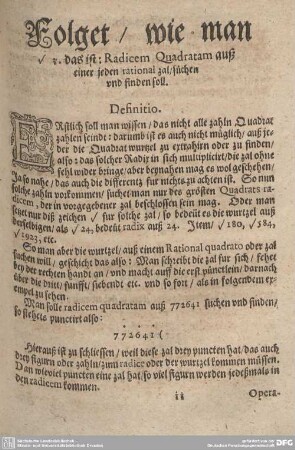 Folget / wie man
√ z. das ist: Radicem Quadratam auß
einer jeden rational zal/ suchen
vnd finden soll.
Definitio.
ERstlich soll man wissen/ das nicht alle zahln Quadrat
zahlen seindt: darumb ist es auch nicht müglich/ auß je-
der die Quadrat wurtzel zu extrahirn oder zu finden/
also: das solcher Radix in sich multiplicirt/ die zal ohne
fehl wider bringe/ aber beynahen mag es wol geschehen/
Ja so nahe/ das auch die differentz für nichts zu achten ist. So nun
solche zahln vorkommen/ suchet man nur des größten Quadrats ra-
dicem, der in vorgegebener zal beschlossen sein mag. Oder man
setzet nur diß zeichen √ für solche zal/ so bedeüt es die wurtzel auß
derselbigen/ als √ 24, bedeüt radix auß 24. Item/ √ 180, √ 584,
√ 1923, etc.
So man aber die wurtzel/ auß einem Rational quadrato oder zal
suchen will/ geschicht das also: Man schreibt die zal für sich/ sehet
bey der rechten handt an/ vnd macht auff die erst pünctlein/ darnach
vber die dritt/ fünfft/ siebendt etc. vnd so fort/ als in folgendem ex-
empel zu sehen.
Man solle radicem quadratam auß 772641 suchen vnd finden/
so stehets punctirt also:
772641 (
Hierauß ist zu schliessen/ weil diese zal drey puncten hat/ das auch
drey figurn oder zahln/ zum radice oder der wurtzel kommen müssen.
Dan wieviel puncten eine zal hat/ so viel figurn werden jedeßmals in
den radicem kommen.
ii Opera-